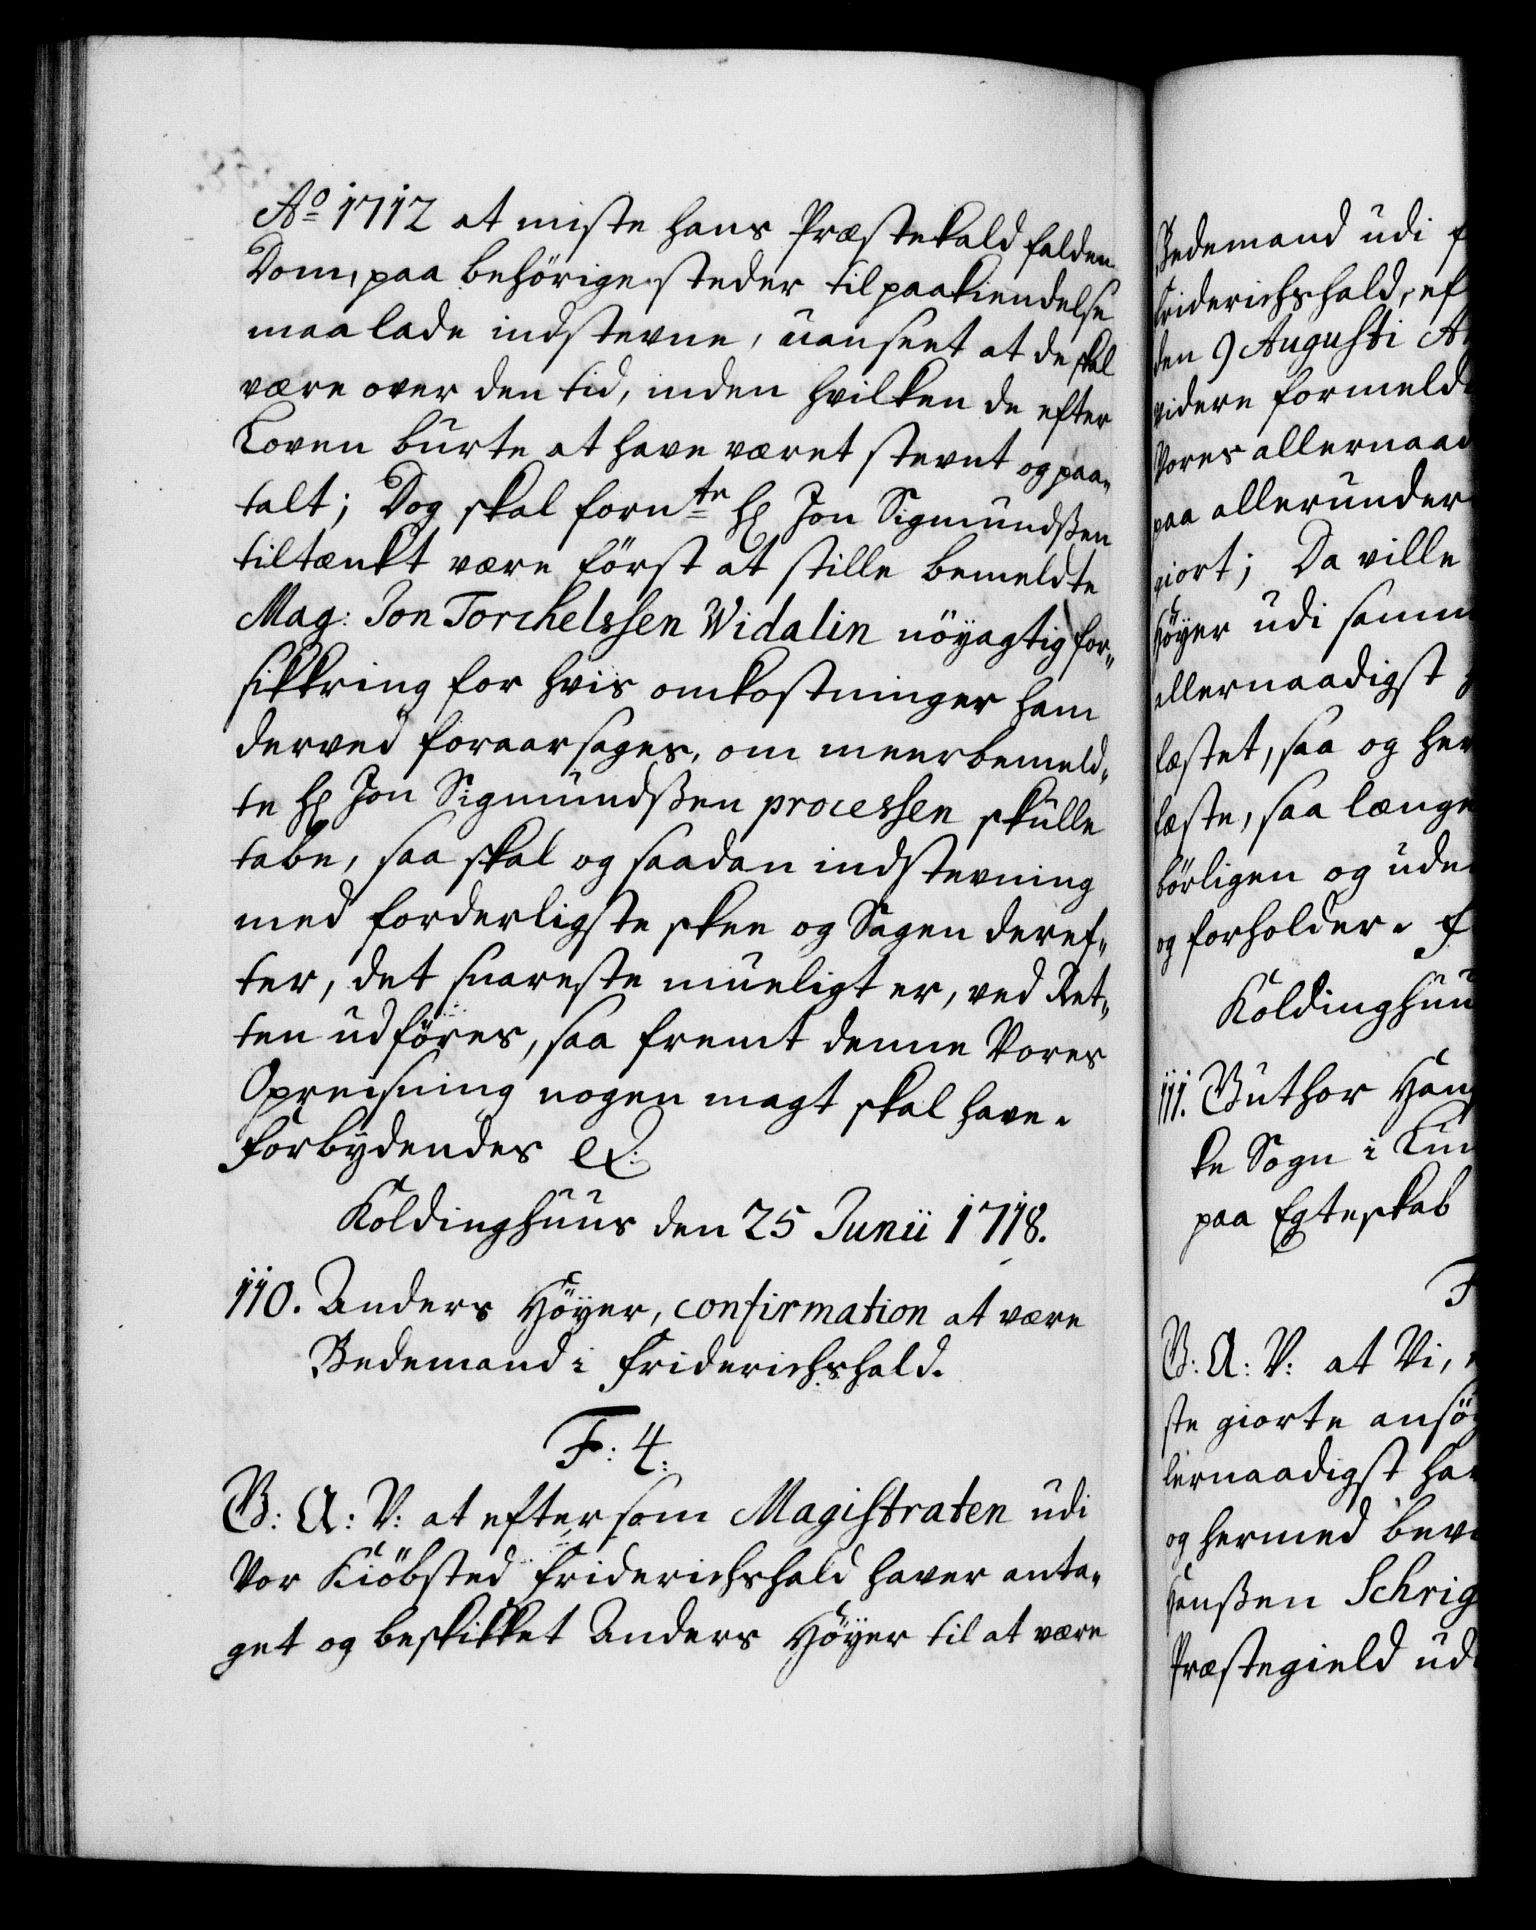 Aº 1712 at miste hans Præstekald falden
Dom, paa behörige steder til paakiendelse
maa lade indstevne, uanseet at de skal
være over den tid, inden hvilken de efter
Loven burte at have været stevnt og paa-
talt; Dog skal fornte Hr Jon Sigmundßen
tiltænkt være först at stille bemeldte
Mag: Jon Torchelssen Widalin nöyagtig for-
sikkring for hvis omkostninger ham
derved foraarsages, om meerbemeld-
te Hr Jon Sigmundßen processen skulle
tabe, saa skal og saadan indstevning
med forderligste skee og Sagen deref-
ter, det snareste mueligt er, ved Ret-
ten udföres, saa fremt denne Vores
Opreisning nogen magt skal have.
Forbydendes &:
Koldinghuus den 25 Junii 1718.
110. Anders Höyer, confirmation at være
Bedemand i Friderichshald.
F: 4.
G: A: V: at eftersom Magistraten udi
Vor Kiöbsted Friderichshald haver anta-
get og beskikket Anders Höyer til at være
Bedemand udi
Friderichshald, ef
den 9 Augusti A
videre formeld
Vores allernaad
paa allerunder
giort; Da ville
Höyer udi samm
allernaadigst
fæstet, saa og her
fæste, saa længe
börligen og ude
og forholder. F
Koldinghuu
111. Guthor Han
ke Sogn i Lun
paa Egteskab
F
G: A: V: at Vi,
ste giorte ansög
lernaadigst ha
og hermed bev
Hanßen Schrig
Præstegield ud